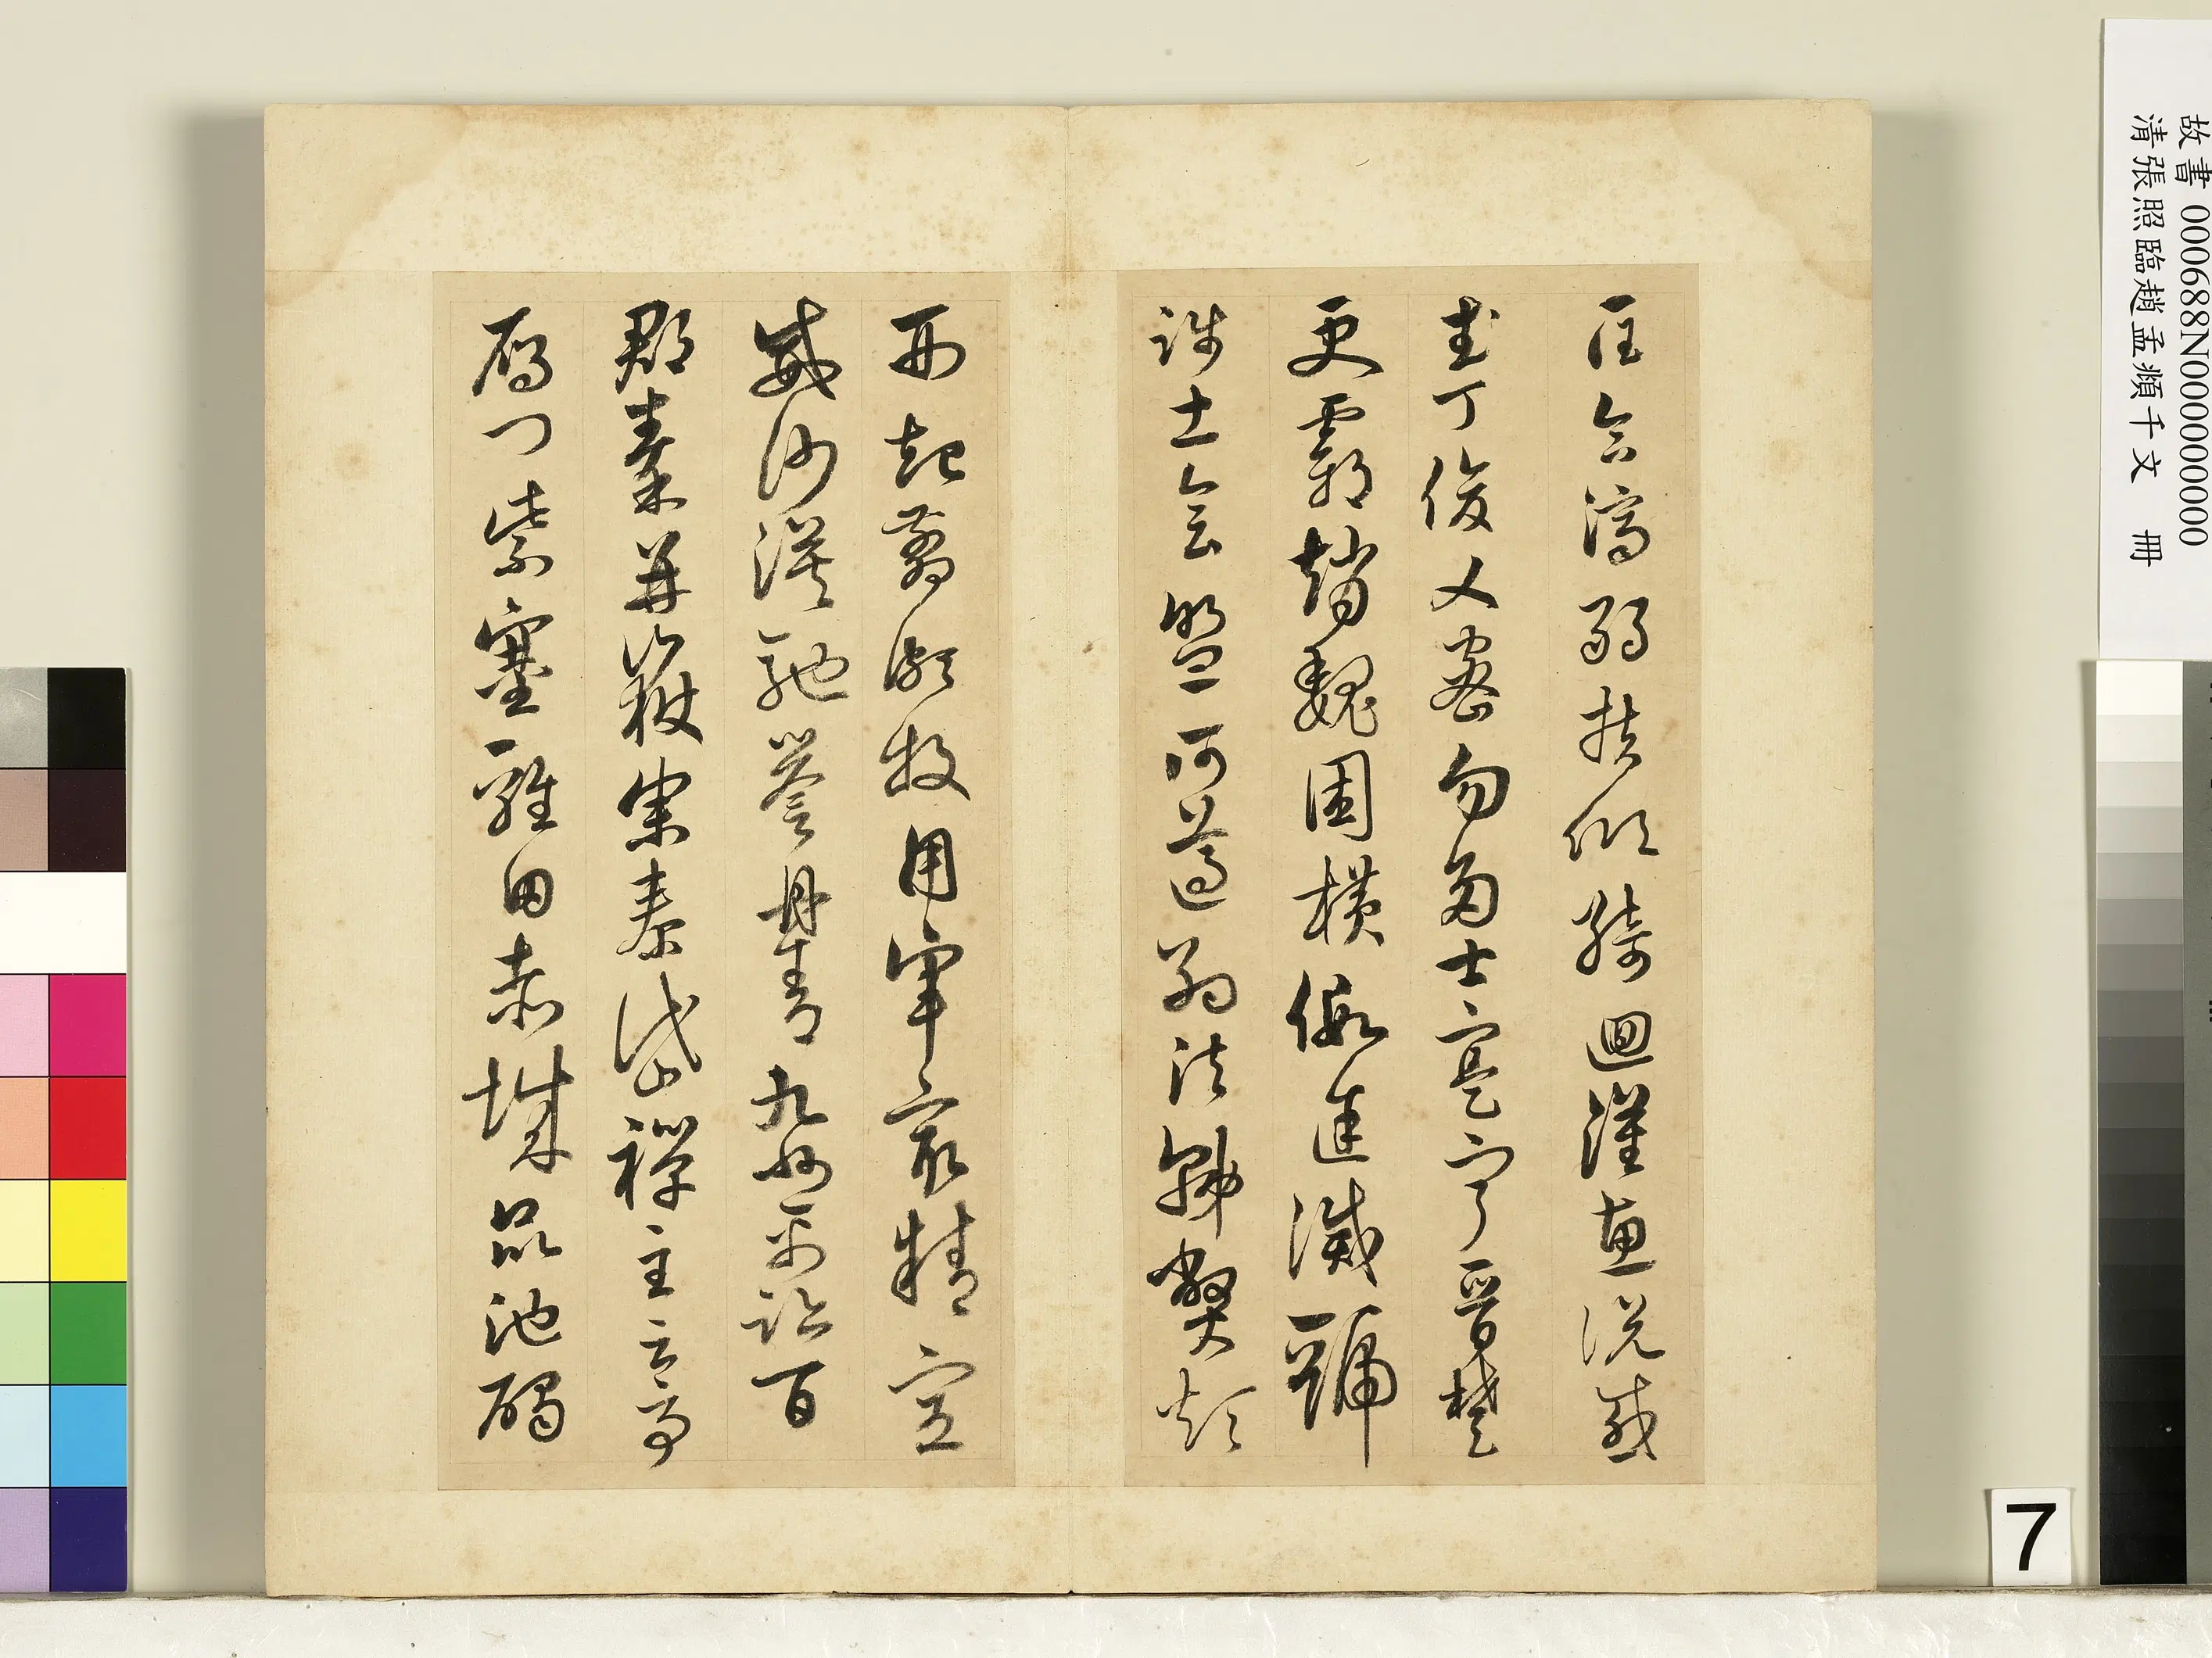 匡合濟弱扶傾綺迴漢惠說感
武丁俊乂密勿多士寔寧晉楚
更霸趙魏困橫假途滅虢
踐土會盟何遵約法韓弊煩
刑起翦頗牧用軍最精宣
威沙漠馳譽丹青九州禹跡百
郡秦并嶽宗泰岱禪主云亭
雁門紫塞雞田赤城昆池碣
故書 000688N000000000
清張照臨趙孟頫千文 冊
7